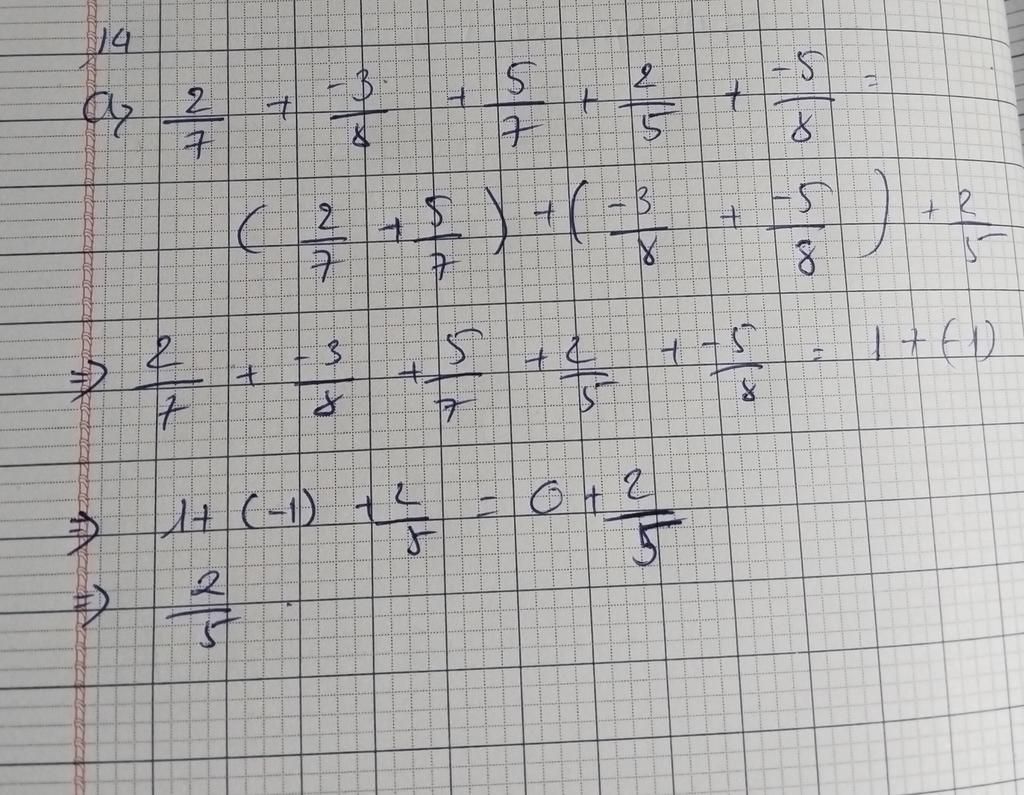 14
a) 2/7 + -3/8 + 5/7 + 2/5 + -5/8 =
( 2/7 + 5/7 ) + ( -3/8 + -5/8 ) + 2/5
⇒ 2/7 + -3/8 + 5/7 + 2/5 + -5/8 = 1 + (-1)
⇒ 1 + (-1) + 2/5 = 0 + 2/5
⇒ 2/5 .